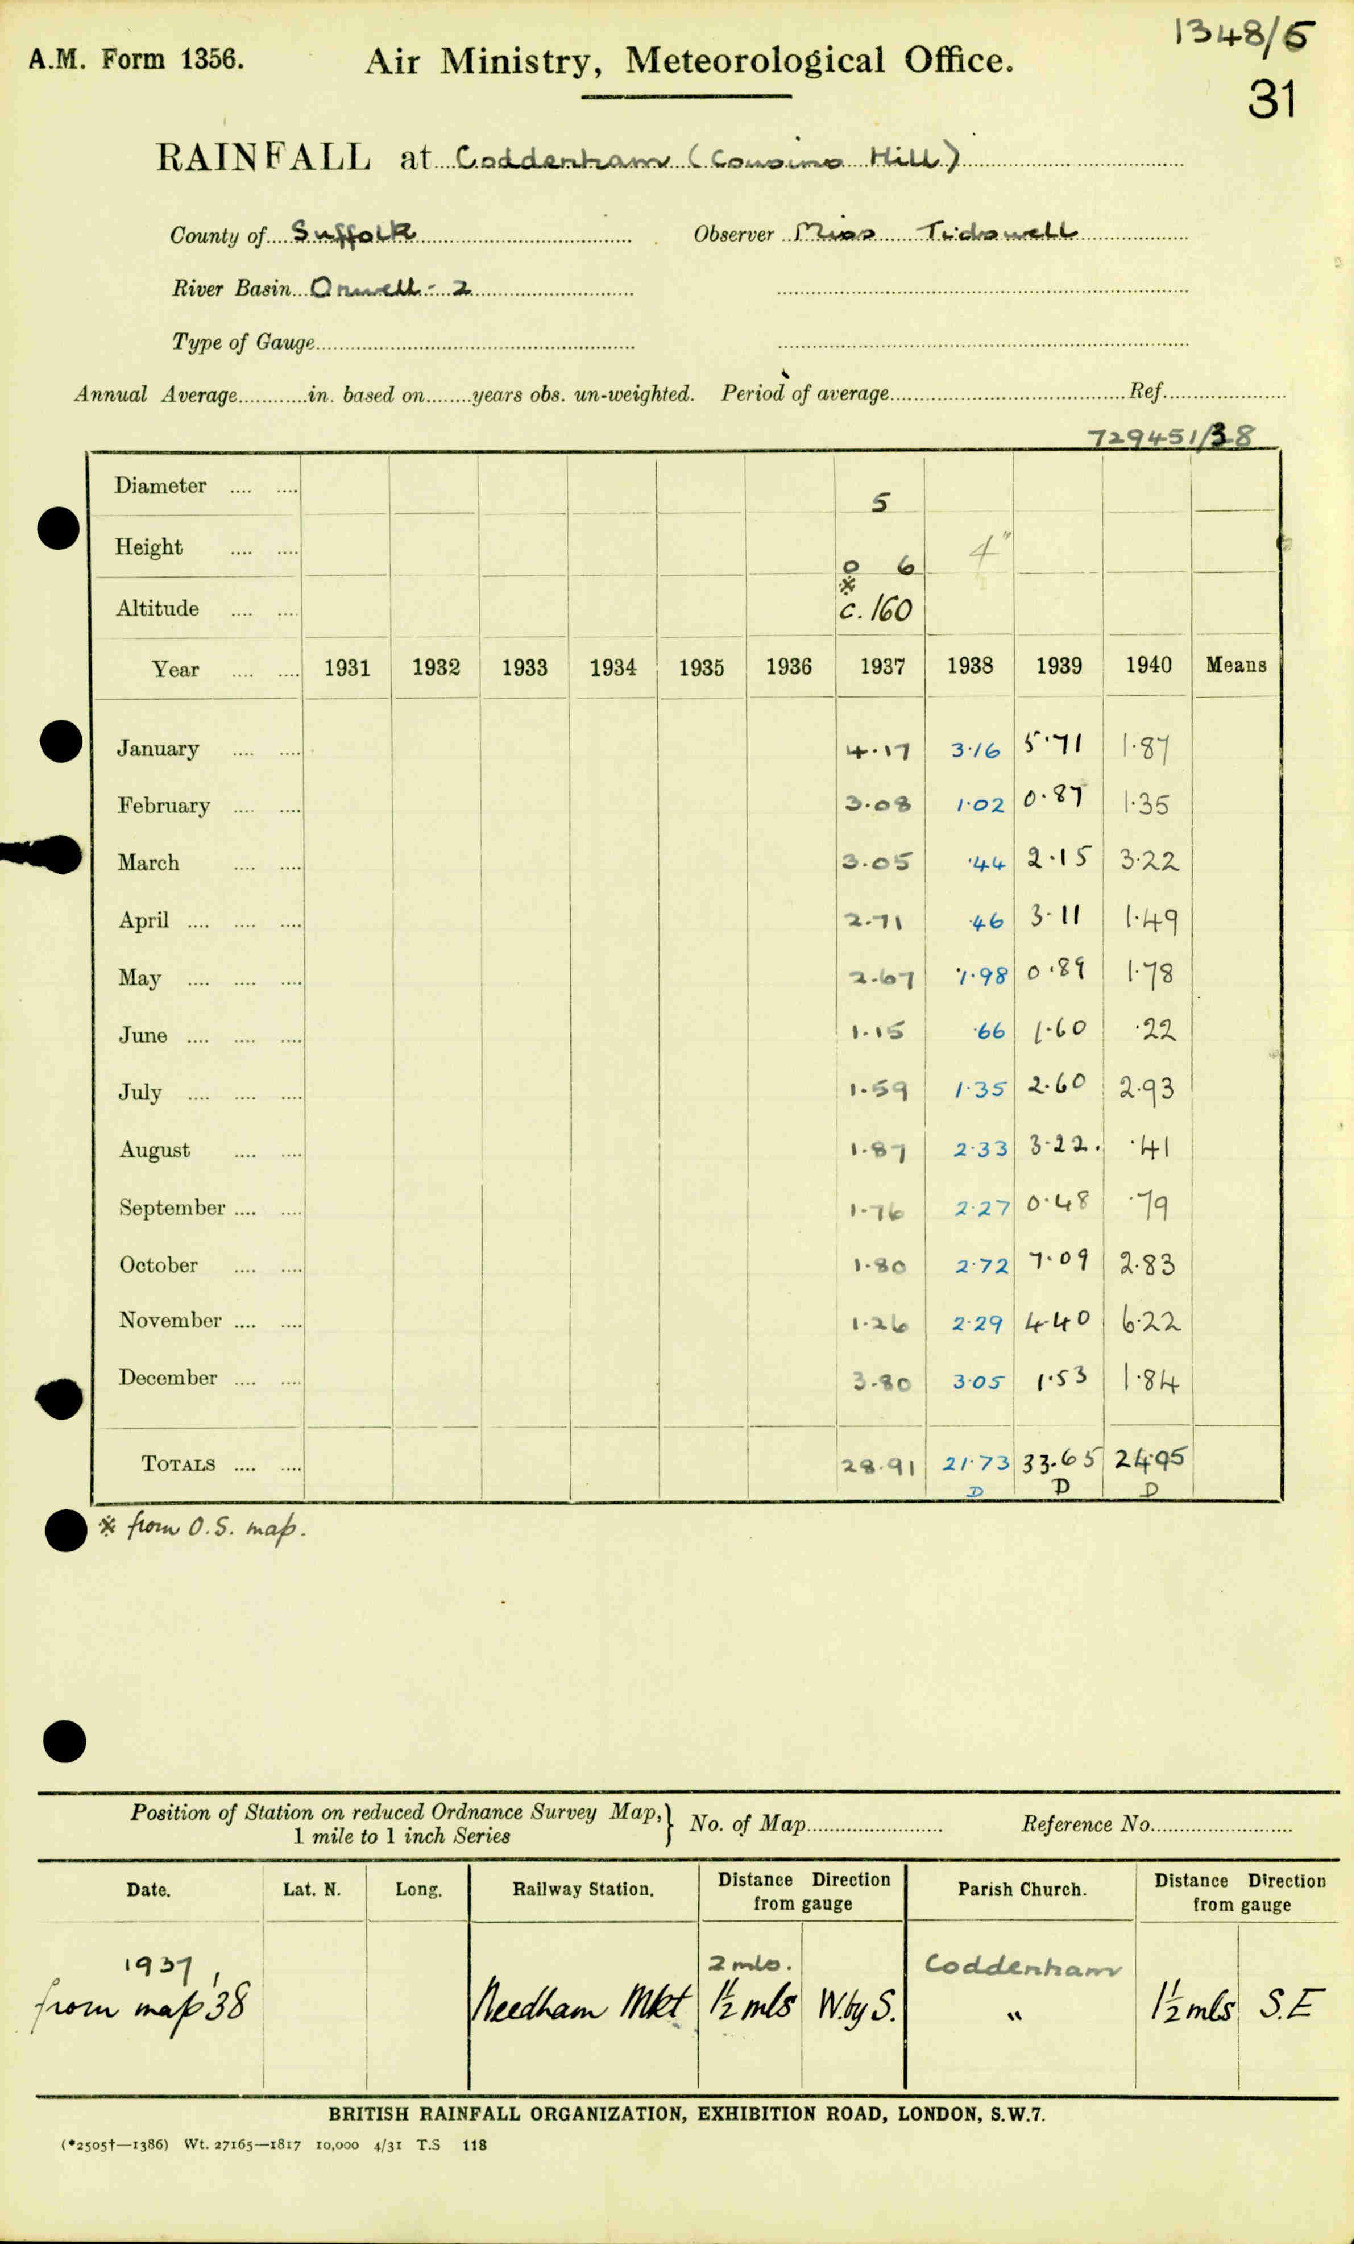 1348/5
A.M. Form 1356. Air Ministry, Meteorological Office.
31
RAINFALL at Coddenham (Cousins Hill)
County of Suffolk Observer Miss Tidswell
River Basin Orwell - 2
Type of Gauge
Annual Average in. based on years obs. un-weighted. Period of average Ref.
729451/38
Diameter 5
Height 0 6 4"
※
Altitude c. 160
Year 1931 1932 1933 1934 1935 1936 1937 1938 1939 1940 Means
January 4.17 3.16 5.71 1.87
February 3.08 1.02 0.87 1.35
March 3.05 .44 2.15 3.22
April 2.71 .46 3.11 1.49
May 2.67 1.98 0.89 1.78
June 1.15 .66 1.60 .22
July 1.59 1.35 2.60 2.93
August 1.87 2.33 3.22. .41
September 1.76 2.27 0.48 .79
October 1.80 2.72 7.09 2.83
November 1.26 2.29 4.40 6.22
December 3.80 3.05 1.53 1.84
TOTALS 28.91 21.73 33.65 24.95
D D D
※ from O.S. map.
Position of Station on reduced Ordnance Survey Map, } No. of Map Reference No.
1 mile to 1 inch Series
Date. Lat. N. Long. Railway Station. Distance Direction from gauge Parish Church. Distance Direction from gauge
1937 2 mls. Coddenham
from map '38 Needham Mkt 1½ mls W. by S. " 1½ mls S.E
BRITISH RAINFALL ORGANIZATION, EXHIBITION ROAD, LONDON, S.W.7.
(*2505†—1386) Wt. 27165—1817 10,000 4/31 T.S 118